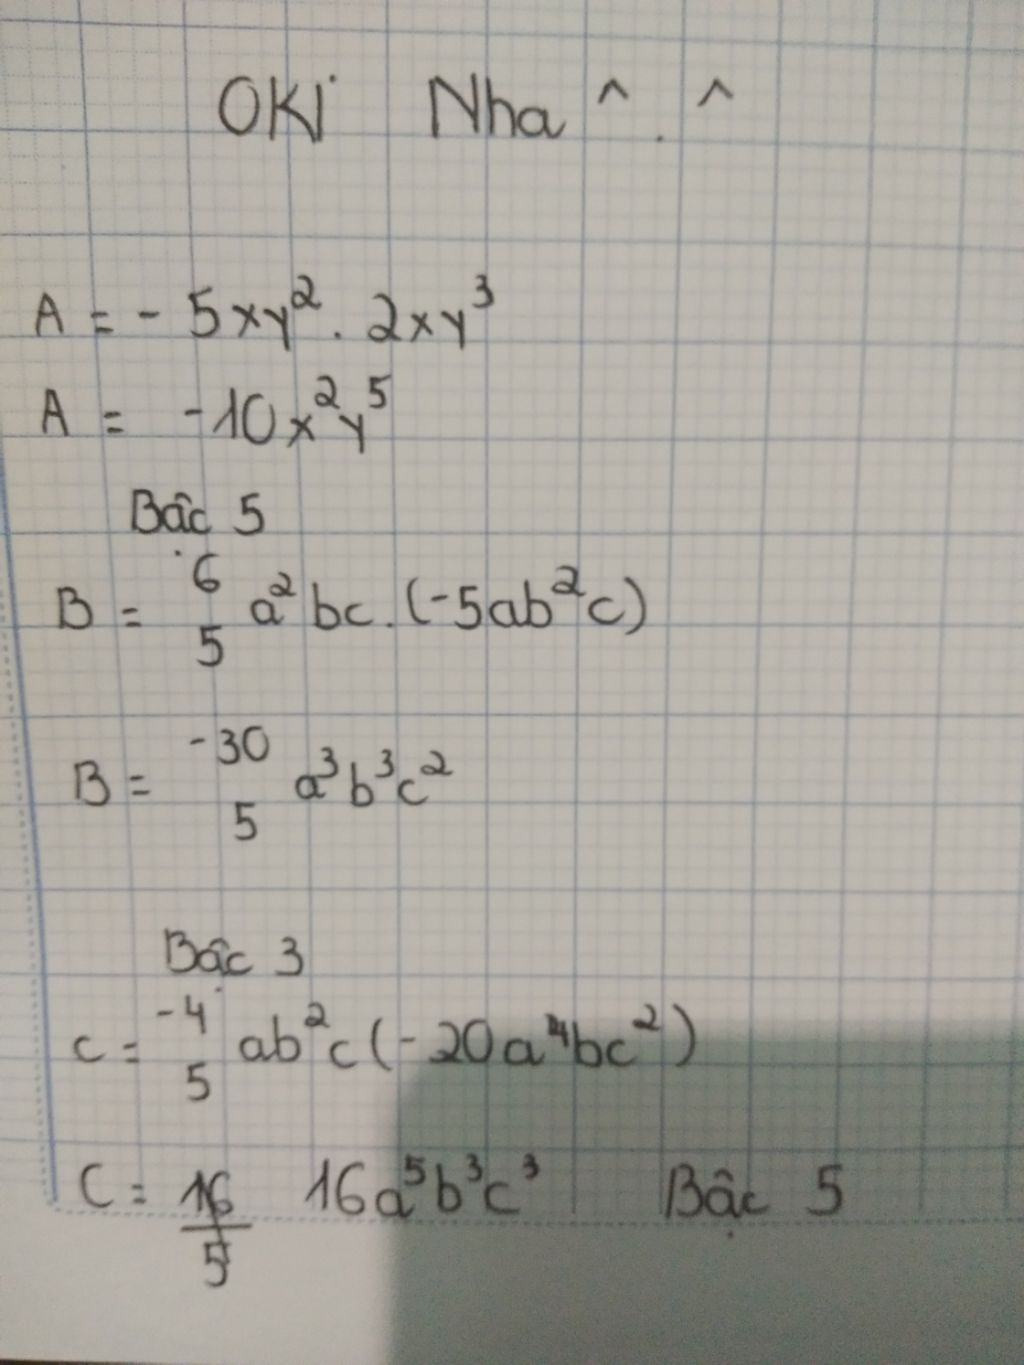 OKI Nha ^.^
A = - 5xy². 2xy³
A = -10x²y⁵
Bậc 5
B = 6/5 a²bc.(-5ab²c)
B = -30/5 a³b³c²
Bậc 3
C = -4/5 ab²c(-20a⁴bc²)
C = 16/5 16a⁵b³c³ Bậc 5